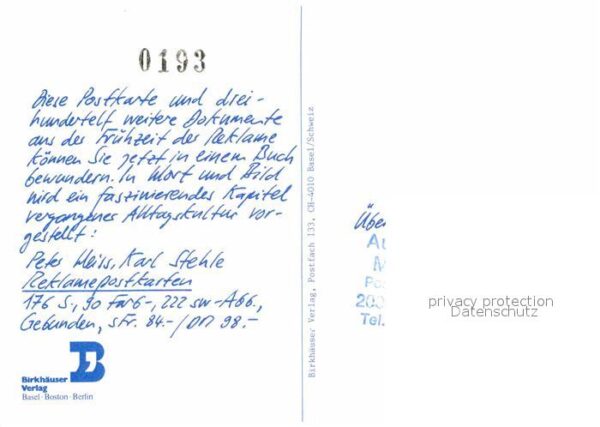 0193
Diese Postkarte und drei-
hundertelf weitere Dokumente
aus der Frühzeit der Reklame
können Sie jetzt in einem Buch
bewundern. In Wort und Bild
wird ein faszinierendes Kapitel
vergangener Alltagskultur vor-
gestellt:
Peter Weiss, Karl Stehle
Reklamepostkarten
176 S., 90 Farb-, 222 sw-Abb.,
Gebunden, sFr. 84.-/DM 98.-
Birkhäuser
Verlag
Basel · Boston · Berlin
Birkhäuser Verlag, Postfach 133, CH-4010 Basel/Schweiz
Über
Au
M
Po
200
Tel.
privacy protection
Datenschutz